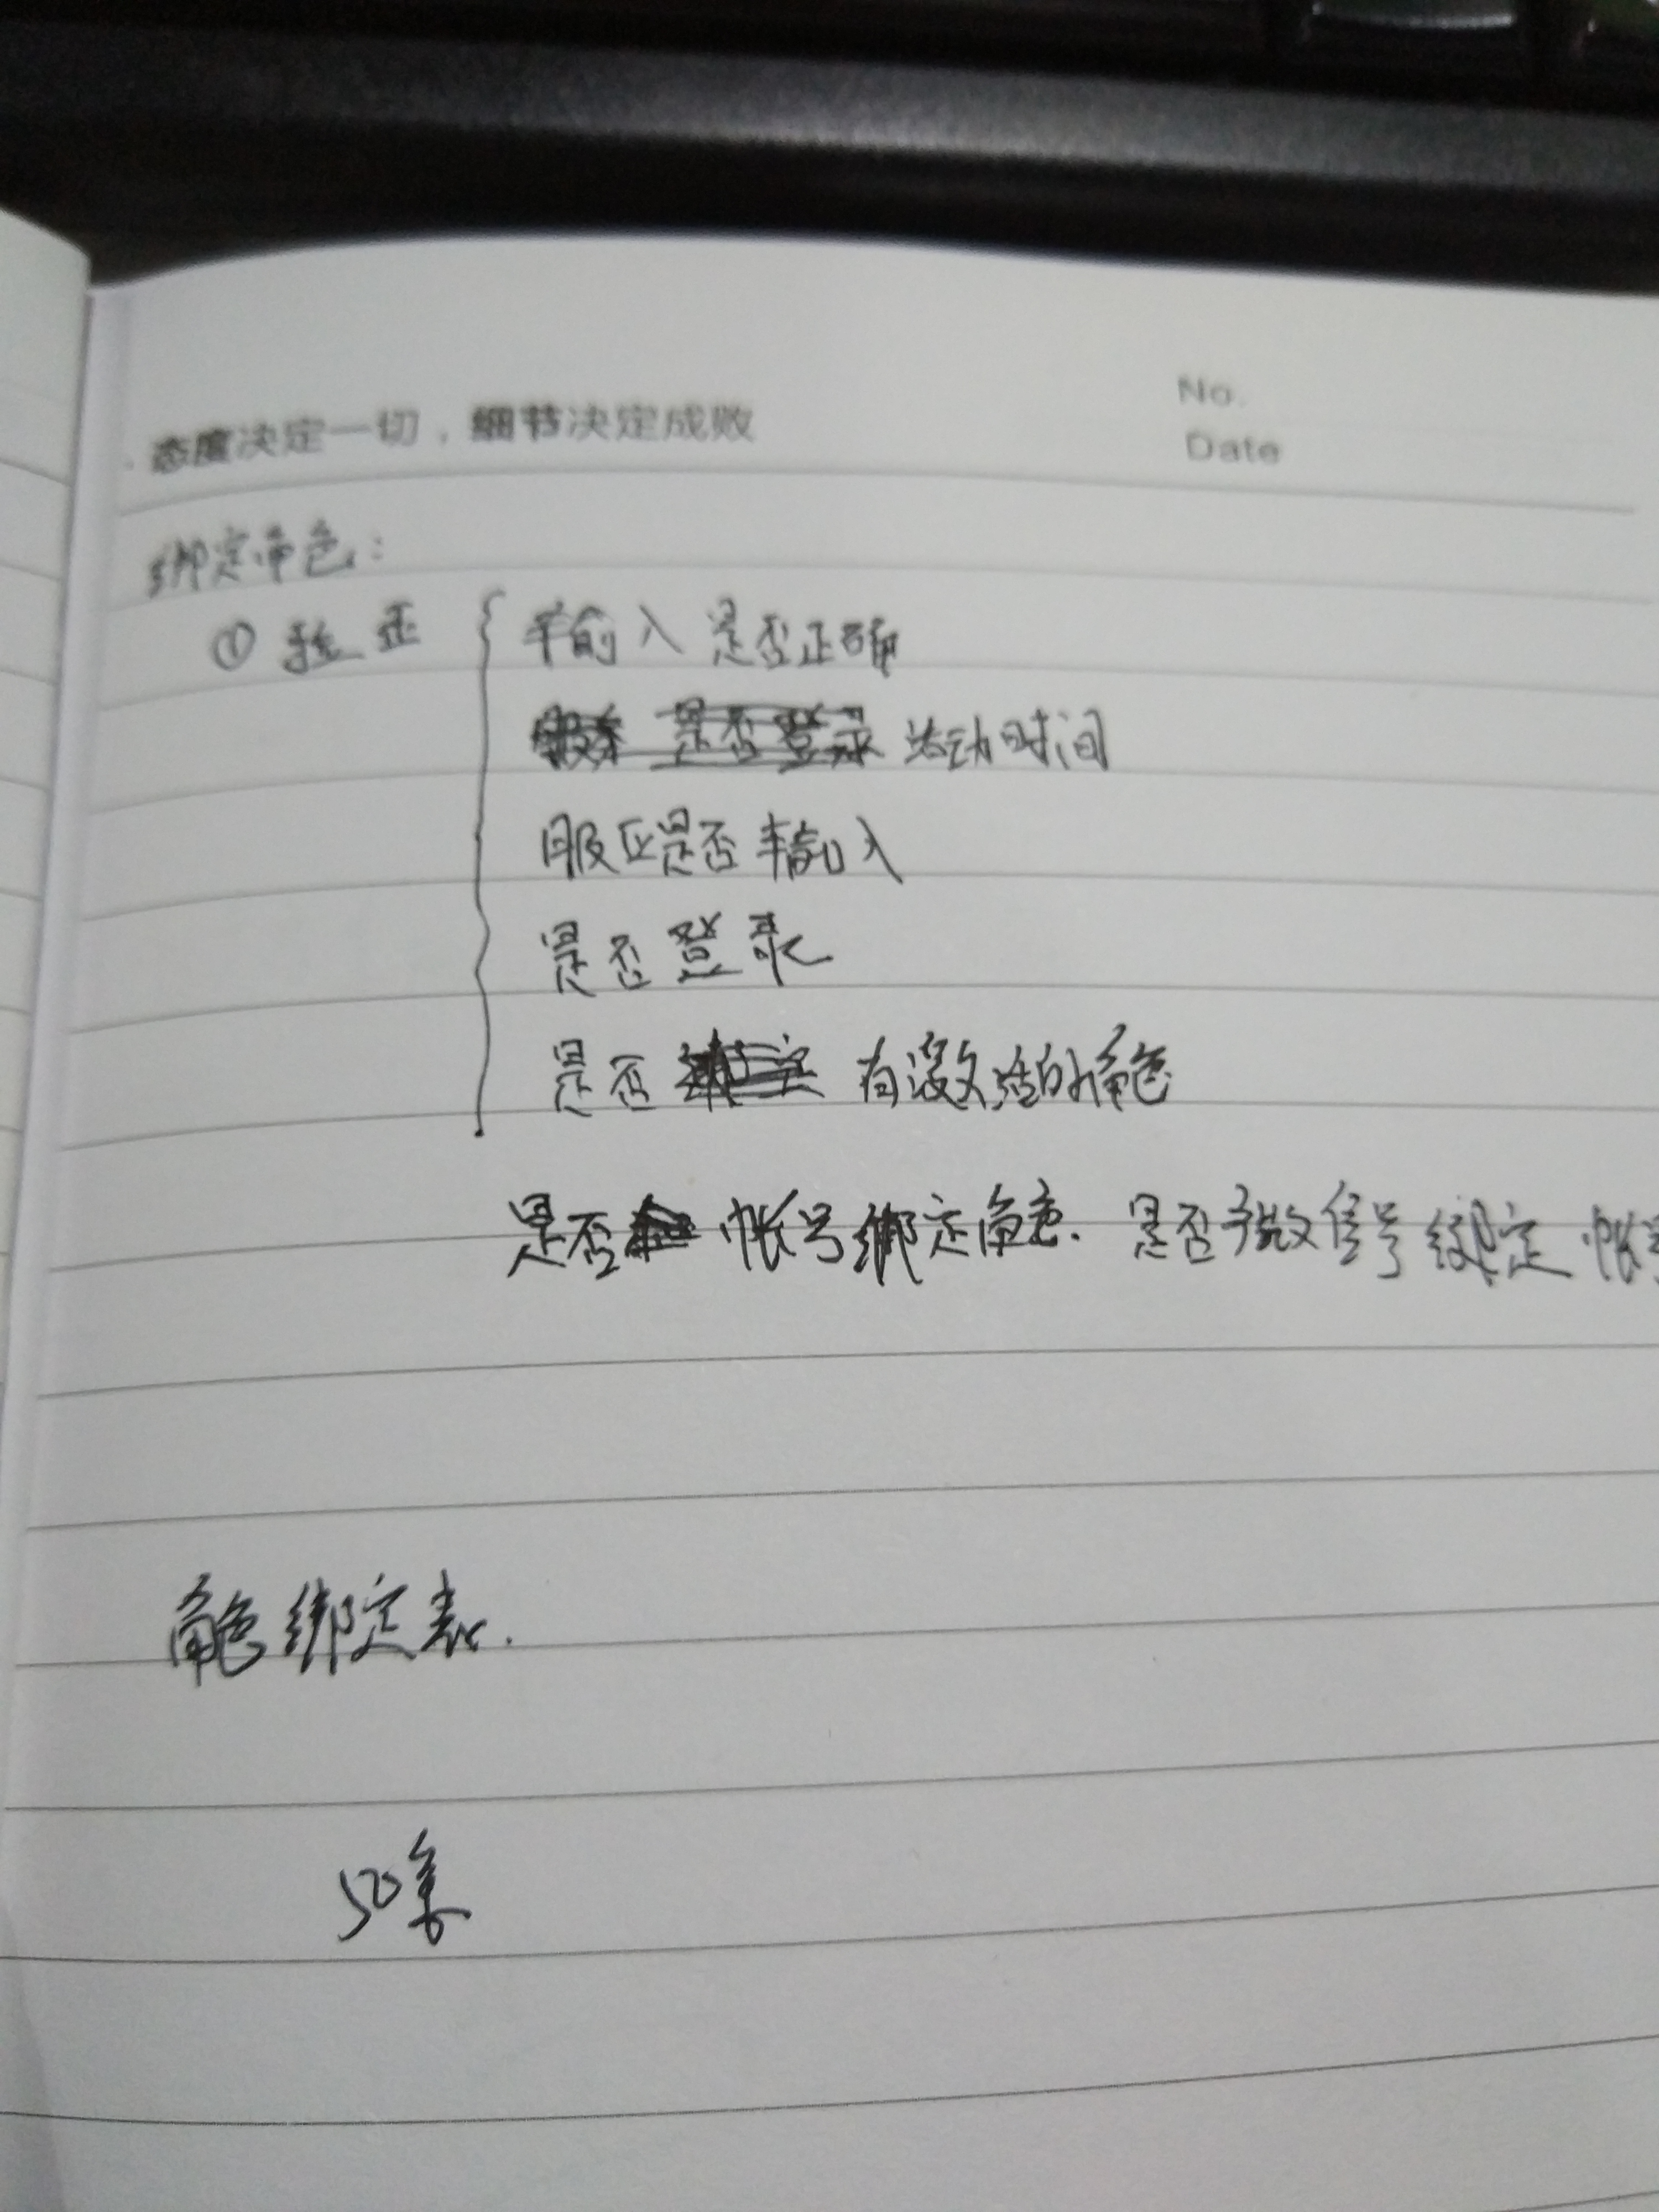 No.
态度决定一切，细节决定成败
Date
绑定角色：
① 验证
输入是否正确
是否登录 活动时间
服区是否输入
是否登录
是否 有激活的角色
是否 帐号绑定角色. 是否微信号绑定 帐号
角色绑定表.
50条